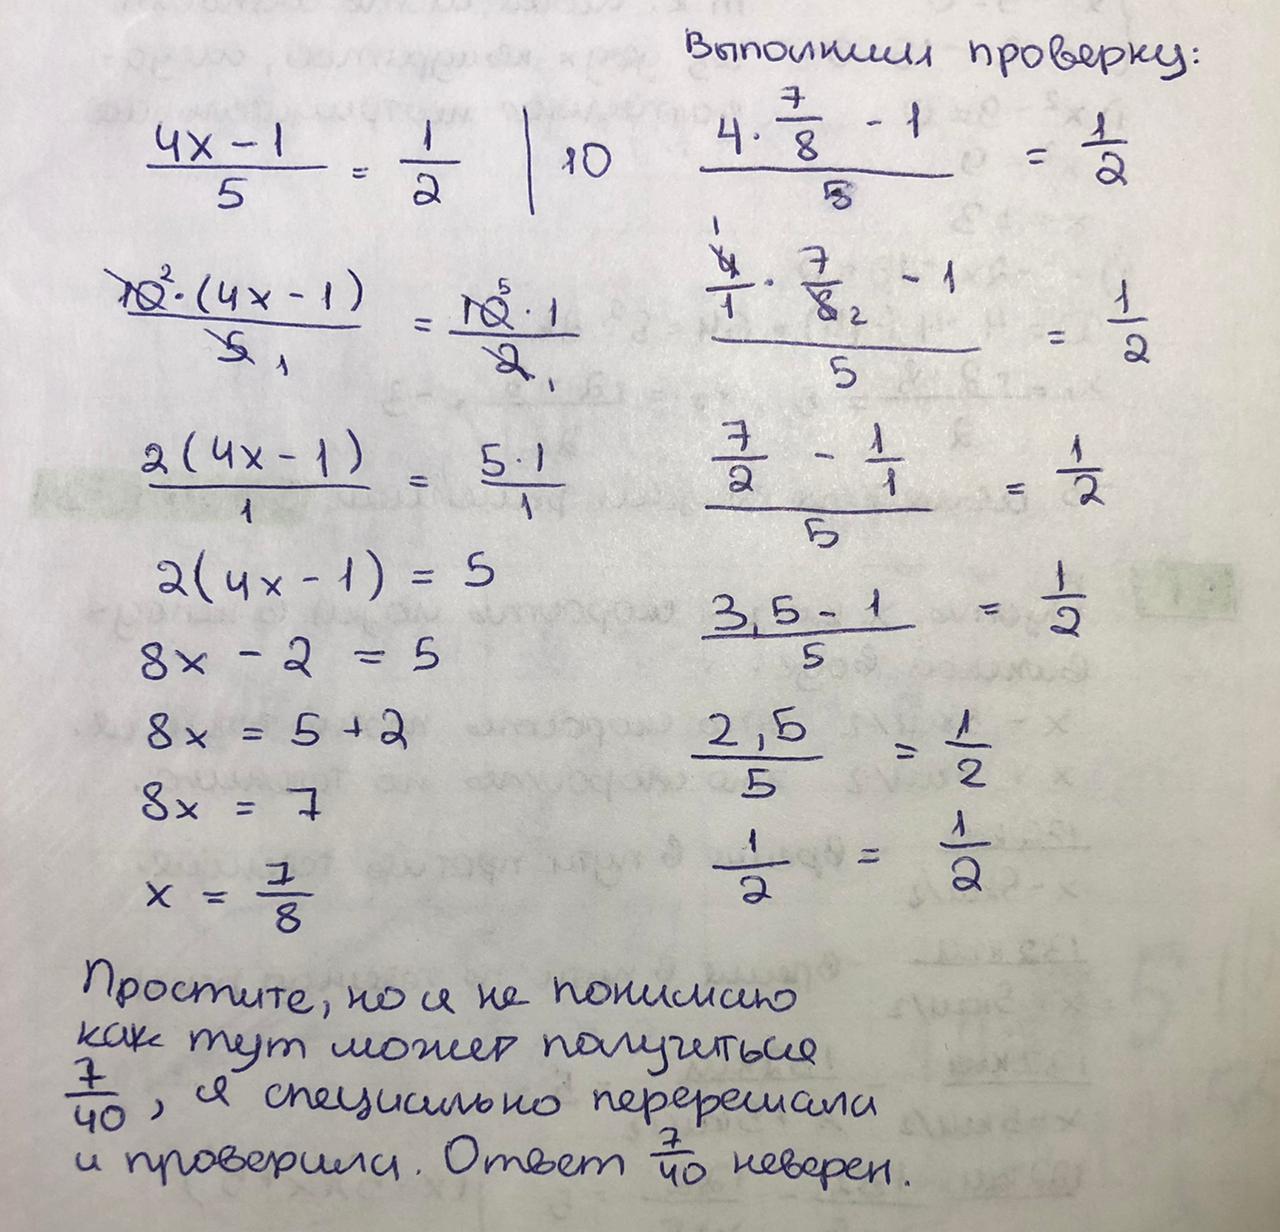 4x - 1 / 5 = 1/2 | 10
10² · (4x - 1) / 5 1 = 10⁵ · 1 / 2 1
2(4x - 1) / 1 = 5·1 / 1
2(4x - 1) = 5
8x - 2 = 5
8x = 5 + 2
8x = 7
x = 7/8
Выполним проверку:
4 · 7/8 - 1 / 5 = 1/2
1 4/1 · 7/8 2 - 1 / 5 = 1/2
7/2 - 1/1 / 5 = 1/2
3,5 - 1 / 5 = 1/2
2,5 / 5 = 1/2
1/2 = 1/2
Простите, но я не понимаю
как тут может получиться
7/40, я специально перерешала
и проверила. Ответ 7/40 неверен.